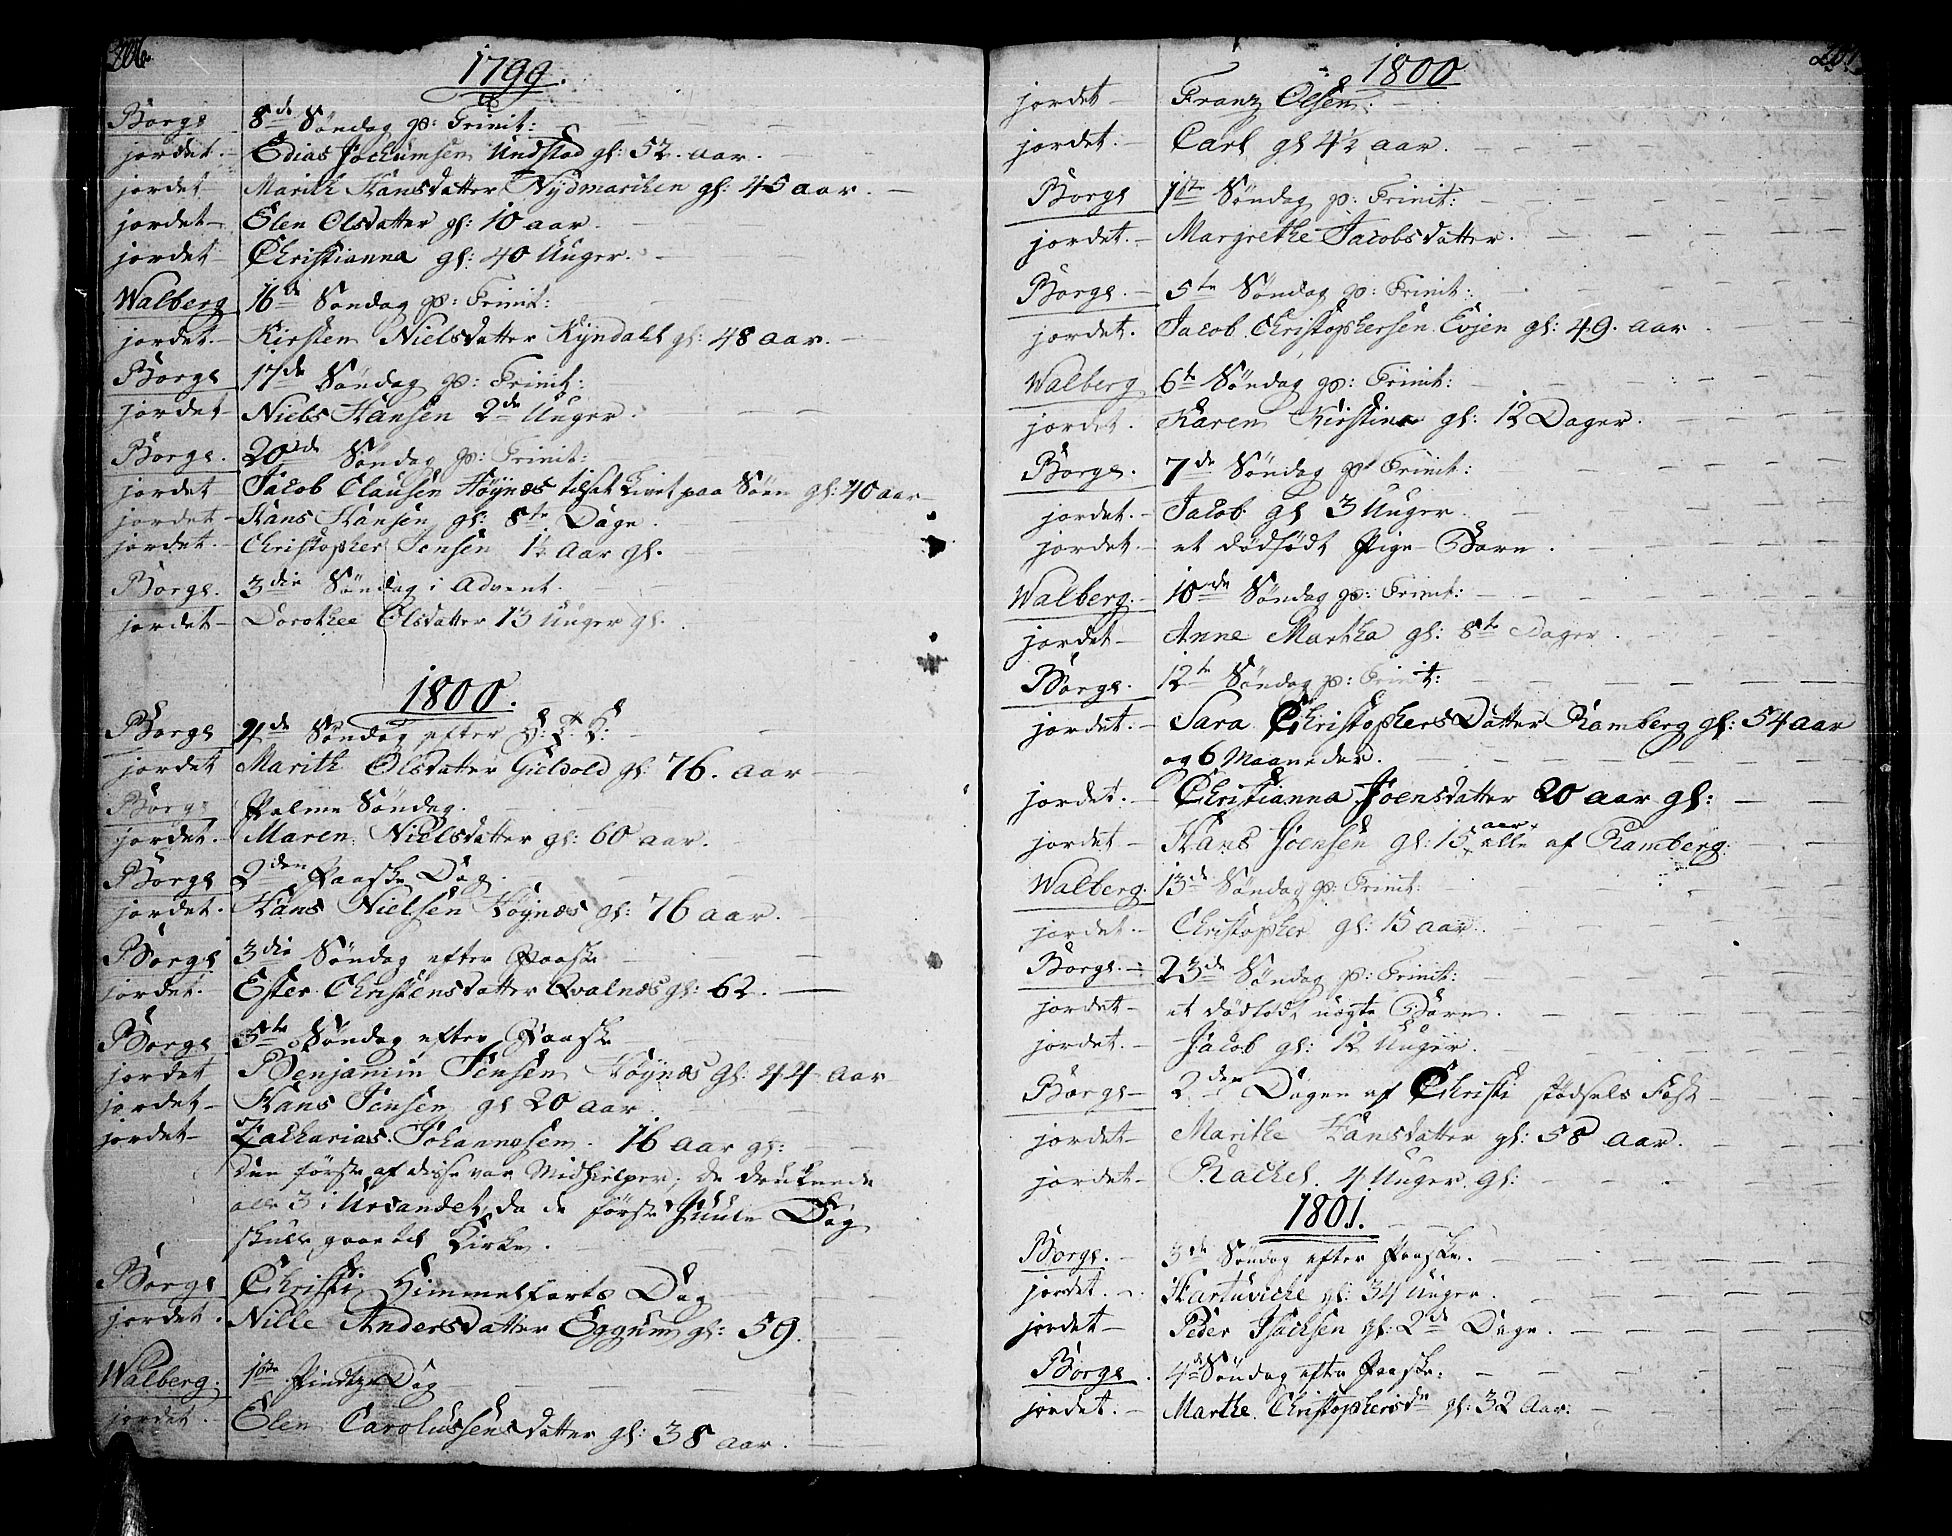 206
1799.
Borge 8de Søndag p: Trinit:
jordet. Edias Jochumsen Undstad gl: 52. aar.
jordet Marith Hansdatter Nydmarchen gl: 45 aar.
jordet Elen Olsdatter gl: 10 aar.
jordet Christianna gl: 40 Uuger.
Walberg 16de Søndag p: Trinit:
jordet. Kirsten Nielsdatter Kyndahl gl: 48 aar.
Borge 17de Søndag p: Trinit:
jordet Niels Hansen 2de Uuger.
Borge. 20nde Søndag p: Trinit:
jordet Jacob Clausen Høynæs tilsat Livet paa Søen gl: 40 aar
jordet Hans Hansen gl: 8te Dage.
jordet. Christopher Jensen 1½ Aar gl.
Borge. 3die Søndag i Advent.
jordet Dorothee Olsdatter 13 Uuger gl.
1800.
Borge 4de Søndag efter H: 3 K:
jordet Marith Olsdatter Gieldold gl: 76. aar
Borge Palme Søndag.
jordet. Maren Nielsdatter gl: 60 aar.
Borge 2den Paaske Dag.
jordet. Hans Nielsen Høynæs gl: 76 aar.
Borge 3die Søndag efter Paaske
jordet. Ester Christensdatter Qvalnæs gl: 62.
Borge 5te Søndag efter Paaske
jordet Benjamin Jensen Høynæs gl: 44 aar
jordet Hans Jensen gl 20 aar
jordet Zacharias Johannesen. 16 aar gl:
den første af disse var Medhielper; de druknede
alle 3 i Ursandet, da de første Juule Dag
skulle gaae til Kirke.
Borge Christi Himmelfarts Dag
jordet. Nille Andersdatter Eggum gl: 59.
Walberg. 1ste Pindtze Dag
jordet. Elen Carolussensdatter gl: 38 aar.
207
1800
jordet Franz Olsen.
jordet. Carl gl 4½ aar.
Borge 1ste Søndag p: Trinit:
jordet. Margrethe Jacobsdatter.
Borge. 5te Søndag p: Trinit:
jordet. Jacob Christophersen Evjen gl: 49. aar
Walberg 6te Søndag p: Trinit:
jordet. Karen Kirstina gl: 12 Dager.
Borge. 7de Søndag p: Trinit:
jordet. Jacob gl 3 Uuger.
jordet. et dødfødt Pige-Barn.
Walberg. 10de Søndag p: Trinit:
jordet Anne Martha gl: 8te Dager
Borge. 12te Søndag p: Trinit:
jordet. Sara ChristophersDatter Ramberg gl: 54 aar
og 6 Maaneder.
jordet. Christianna Joensdatter 20 aar gl:
jordet Hans Joensen gl: 15 aar alle af Ramberg.
Walberg. 13de Søndag p: Trinit:
jordet. Christopher gl: 15 aar.
Borge. 23de Søndag p: Trinit:
jordet et dødfødt uægte Barn.
jordet. Jacob gl: 12 Uuger.
Borge 2den Dagen af Christi Fødsels Fæst
jordet Marithe Hansdatter gl: 58 aar.
jordet Rachel. 4 Uuger gl:
1801.
Borge. 3de Søndag efter Paaske.
jordet. Hartuviche gl: 34 Uuger.
jordet Peder Isachsen gl: 2de Dage.
Borge 4de Søndag efter Paaske.
jordet. Marthe Christophersdr gl: 32 Aar.